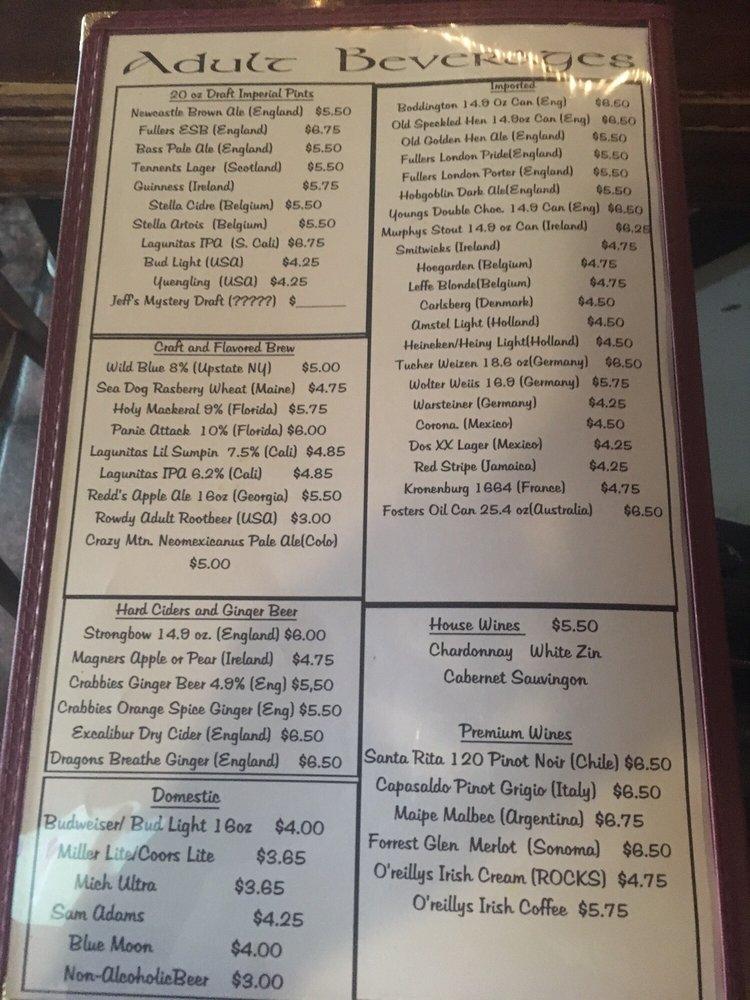 Adult Beverages
20 oz Draft Imperial Pints
Newcastle Brown Ale (England) $5.50
Fullers ESB (England) $6.75
Bass Pale Ale (England) $5.50
Tennents Lager (Scotland) $5.50
Guinness (Ireland) $5.75
Stella Cidre (Belgium) $5.50
Stella Artois (Belgium) $5.50
Lagunitas IPA (S. Cali) $6.75
Bud Light (USA) $4.25
Yuengling (USA) $4.25
Jeff's Mystery Draft (?????) $______
Craft and Flavored Brew
Wild Blue 8% (Upstate NY) $5.00
Sea Dog Rasberry Wheat (Maine) $4.75
Holy Mackeral 9% (Florida) $5.75
Panic Attack 10% (Florida) $6.00
Lagunitas Lil Sumpin 7.5% (Cali) $4.85
Lagunitas IPA 6.2% (Cali) $4.85
Redd's Apple Ale 16oz (Georgia) $5.50
Rowdy Adult Rootbeer (USA) $3.00
Crazy Mtn. Neomexicanus Pale Ale(Colo)
$5.00
Hard Ciders and Ginger Beer
Strongbow 14.9 oz. (England) $6.00
Magners Apple or Pear (Ireland) $4.75
Crabbies Ginger Beer 4.9% (Eng) $5,50
Crabbies Orange Spice Ginger (Eng) $5.50
Excalibur Dry Cider (England) $6.50
Dragons Breathe Ginger (England) $6.50
Domestic
Budweiser/ Bud Light 16oz $4.00
Miller Lite/Coors Lite $3.65
Mich Ultra $3.65
Sam Adams $4.25
Blue Moon $4.00
Non-AlcoholicBeer $3.00
Imported
Boddington 14.9 Oz Can (Eng) $6.50
Old Speckled Hen 14.9oz Can (Eng) $6.50
Old Golden Hen Ale (England) $5.50
Fullers London Pride(England) $5.50
Fullers London Porter (England) $5.50
Hobgoblin Dark Ale(England) $5.50
Youngs Double Choc. 14.9 Can (Eng) $6.50
Murphys Stout 14.9 oz Can (Ireland) $6.25
Smitwicks (Ireland) $4.75
Hoegarden (Belgium) $4.75
Leffe Blonde(Belgium) $4.75
Carlsberg (Denmark) $4.50
Amstel Light (Holland) $4.50
Heineken/Heiny Light(Holland) $4.50
Tucher Weizen 18.6 oz(Germany) $6.50
Wolter Weiis 16.9 (Germany) $5.75
Warsteiner (Germany) $4.25
Corona. (Mexico) $4.50
Dos XX Lager (Mexico) $4.25
Red Stripe (Jamaica) $4.25
Kronenburg 1664 (France) $4.75
Fosters Oil Can 25.4 oz(Australia) $6.50
House Wines $5.50
Chardonnay White Zin
Cabernet Sauvingon
Premium Wines
Santa Rita 120 Pinot Noir (Chile) $6.50
Capasaldo Pinot Grigio (Italy) $6.50
Maipe Malbec (Argentina) $6.75
Forrest Glen Merlot (Sonoma) $6.50
O'reillys Irish Cream (ROCKS) $4.75
O'reillys Irish Coffee $5.75